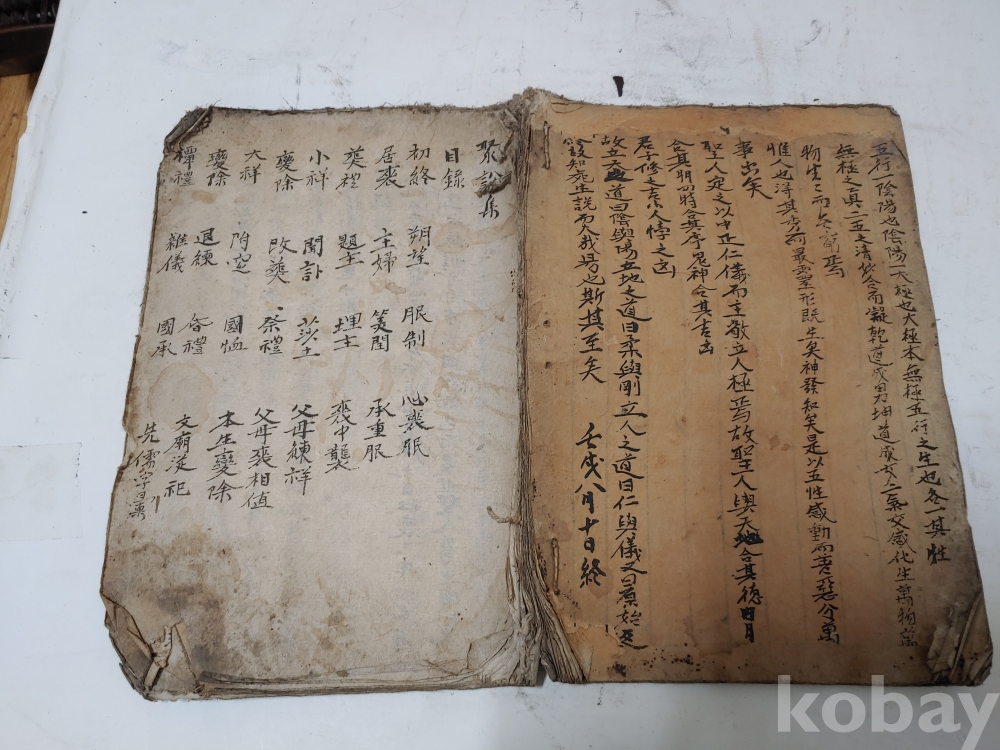 五行一陰陽也陰陽一太極也大極本無極五行之生也各一其性
無極之真二五之清妙合而凝乾道成男坤道成女二氣交感化生萬物萬
物生〻而無窮焉
惟人也淂其秀而最靈形既生矣神發知矣是以五性感動而善惡分萬
事出矣
聖人定之以中正仁儀而主敬立人極焉故聖人與天地合其德日月
合其明四時合其序鬼神合其吉凶
君子修之吉小人悖之凶
故立天道曰陰與陽立地之道曰柔與剛立人之道曰仁與儀又曰原始反
終故知死生說而大哉易也斯其至矣 壬戌八月十日終
聚訟集
目錄
初終 朔望 服制 心喪服
居喪 主婦 閏 承重服
葬禮 題主 埋主 喪中襲
小祥 聞訃 莎土 父母練祥
變除 改葬 祭禮 父母喪相值
大祥 祔窆 國恤 本生變除
變除 退練 昏禮 文廟從祀
禫禮 雜儀 國承 先儒字
kobay